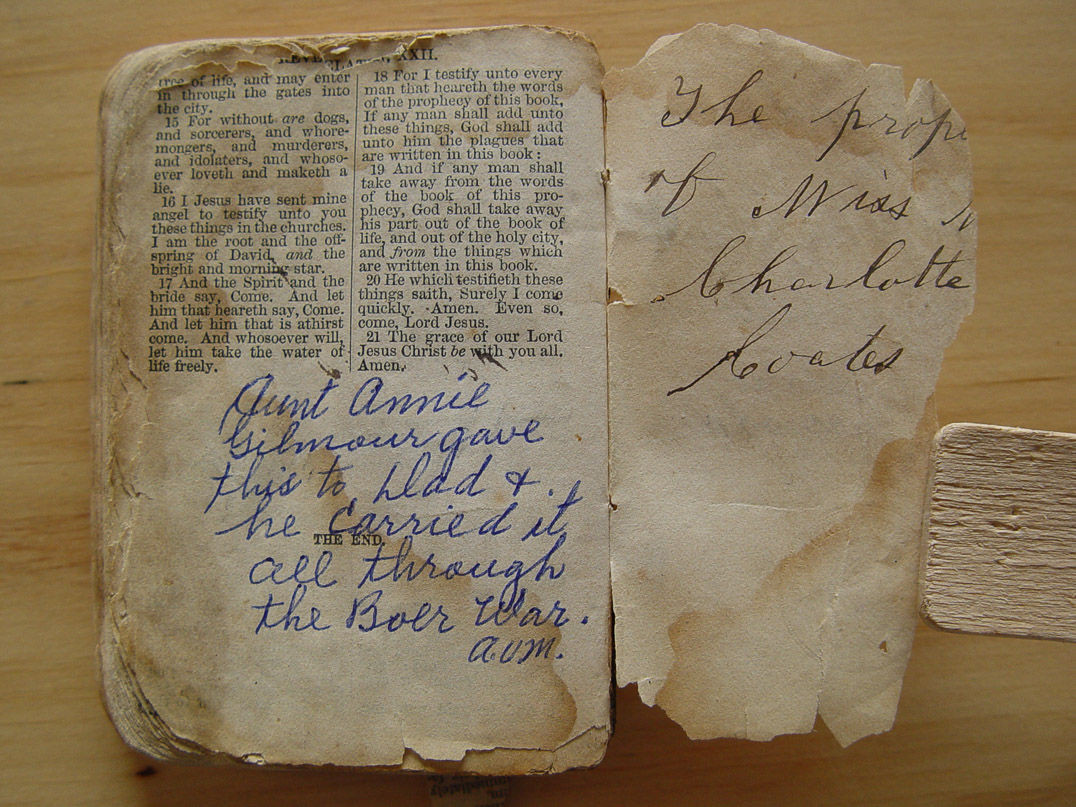 REVELATION, XXII.
tree of life, and may enter
in through the gates into
the city.
15 For without are dogs,
and sorcerers, and whore-
mongers, and murderers,
and idolaters, and whoso-
ever loveth and maketh a
lie.
16 I Jesus have sent mine
angel to testify unto you
these things in the churches.
I am the root and the off-
spring of David, and the
bright and morning star.
17 And the Spirit and the
bride say, Come. And let
him that heareth say, Come.
And let him that is athirst
come. And whosoever will,
let him take the water of
life freely.
18 For I testify unto every
man that heareth the words
of the prophecy of this book,
If any man shall add unto
these things, God shall add
unto him the plagues that
are written in this book:
19 And if any man shall
take away from the words
of the book of this pro-
phecy, God shall take away
his part out of the book of
life, and out of the holy city,
and from the things which
are written in this book.
20 He which testifieth these
things saith, Surely I come
quickly. Amen. Even so,
come, Lord Jesus.
21 The grace of our Lord
Jesus Christ be with you all.
Amen.
Aunt Annie
Gilmour gave
this to Dad &
he carried it
THE END.
all through
the Boer War.
The prope
of Miss
Charlotte
Coates